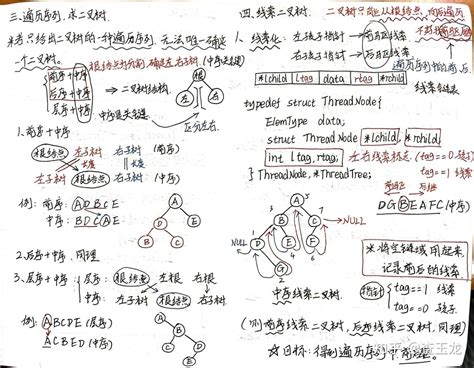 三.遍历序列,求二叉树.
若只给出二叉树的一种遍历序列,无法唯一确定
一个二叉树.
根结点为分割,确定左右子树(中序是关键)
前序+中序
后序+中序
层序+中序
中序是关键
根
左
右
区分左右.
1.前序+中序
根结点 左子树 右子树 (前序)
长度 长度
左子树 根结点 右子树 (中序)
例: 前序: ADBCE
中序: BDCAE
A
D
E
B
C
2.后序+中序,同理
3.层序+中序: 层序: 根结点 左根 右根
中序: 左子树 根结点 右子树
例: ABCDE (层序)
ACBED (中序)
A
B
C
D
E
四.线索二叉树.
二叉树只能从根结点向后遍历
1.线索化: 左孩子指针 前驱线索
右孩子指针 后继线索
遍历序列中的前后
线索链表
*lchild ltag data rtag *rchild
typedef struct ThreadNode{
ElemType data;
struct ThreadNode *lchild, *rchild;
int ltag, rtag; 左右线索标志 (tag==0 孩子
tag==1 线索
} ThreadNode, *ThreadTree;
前驱 后继
DGBEAFC (中序)
A
B
C
D
E
F
G
NULL
NULL
中序线索二叉树
※将空链域用起来,
记录前后的线索
指针 tag==1 线索
tag==0 孩子
(则前序线索二叉树,后序线索二叉树,同理)
☆目标: 得到遍历序列中前后.
知乎